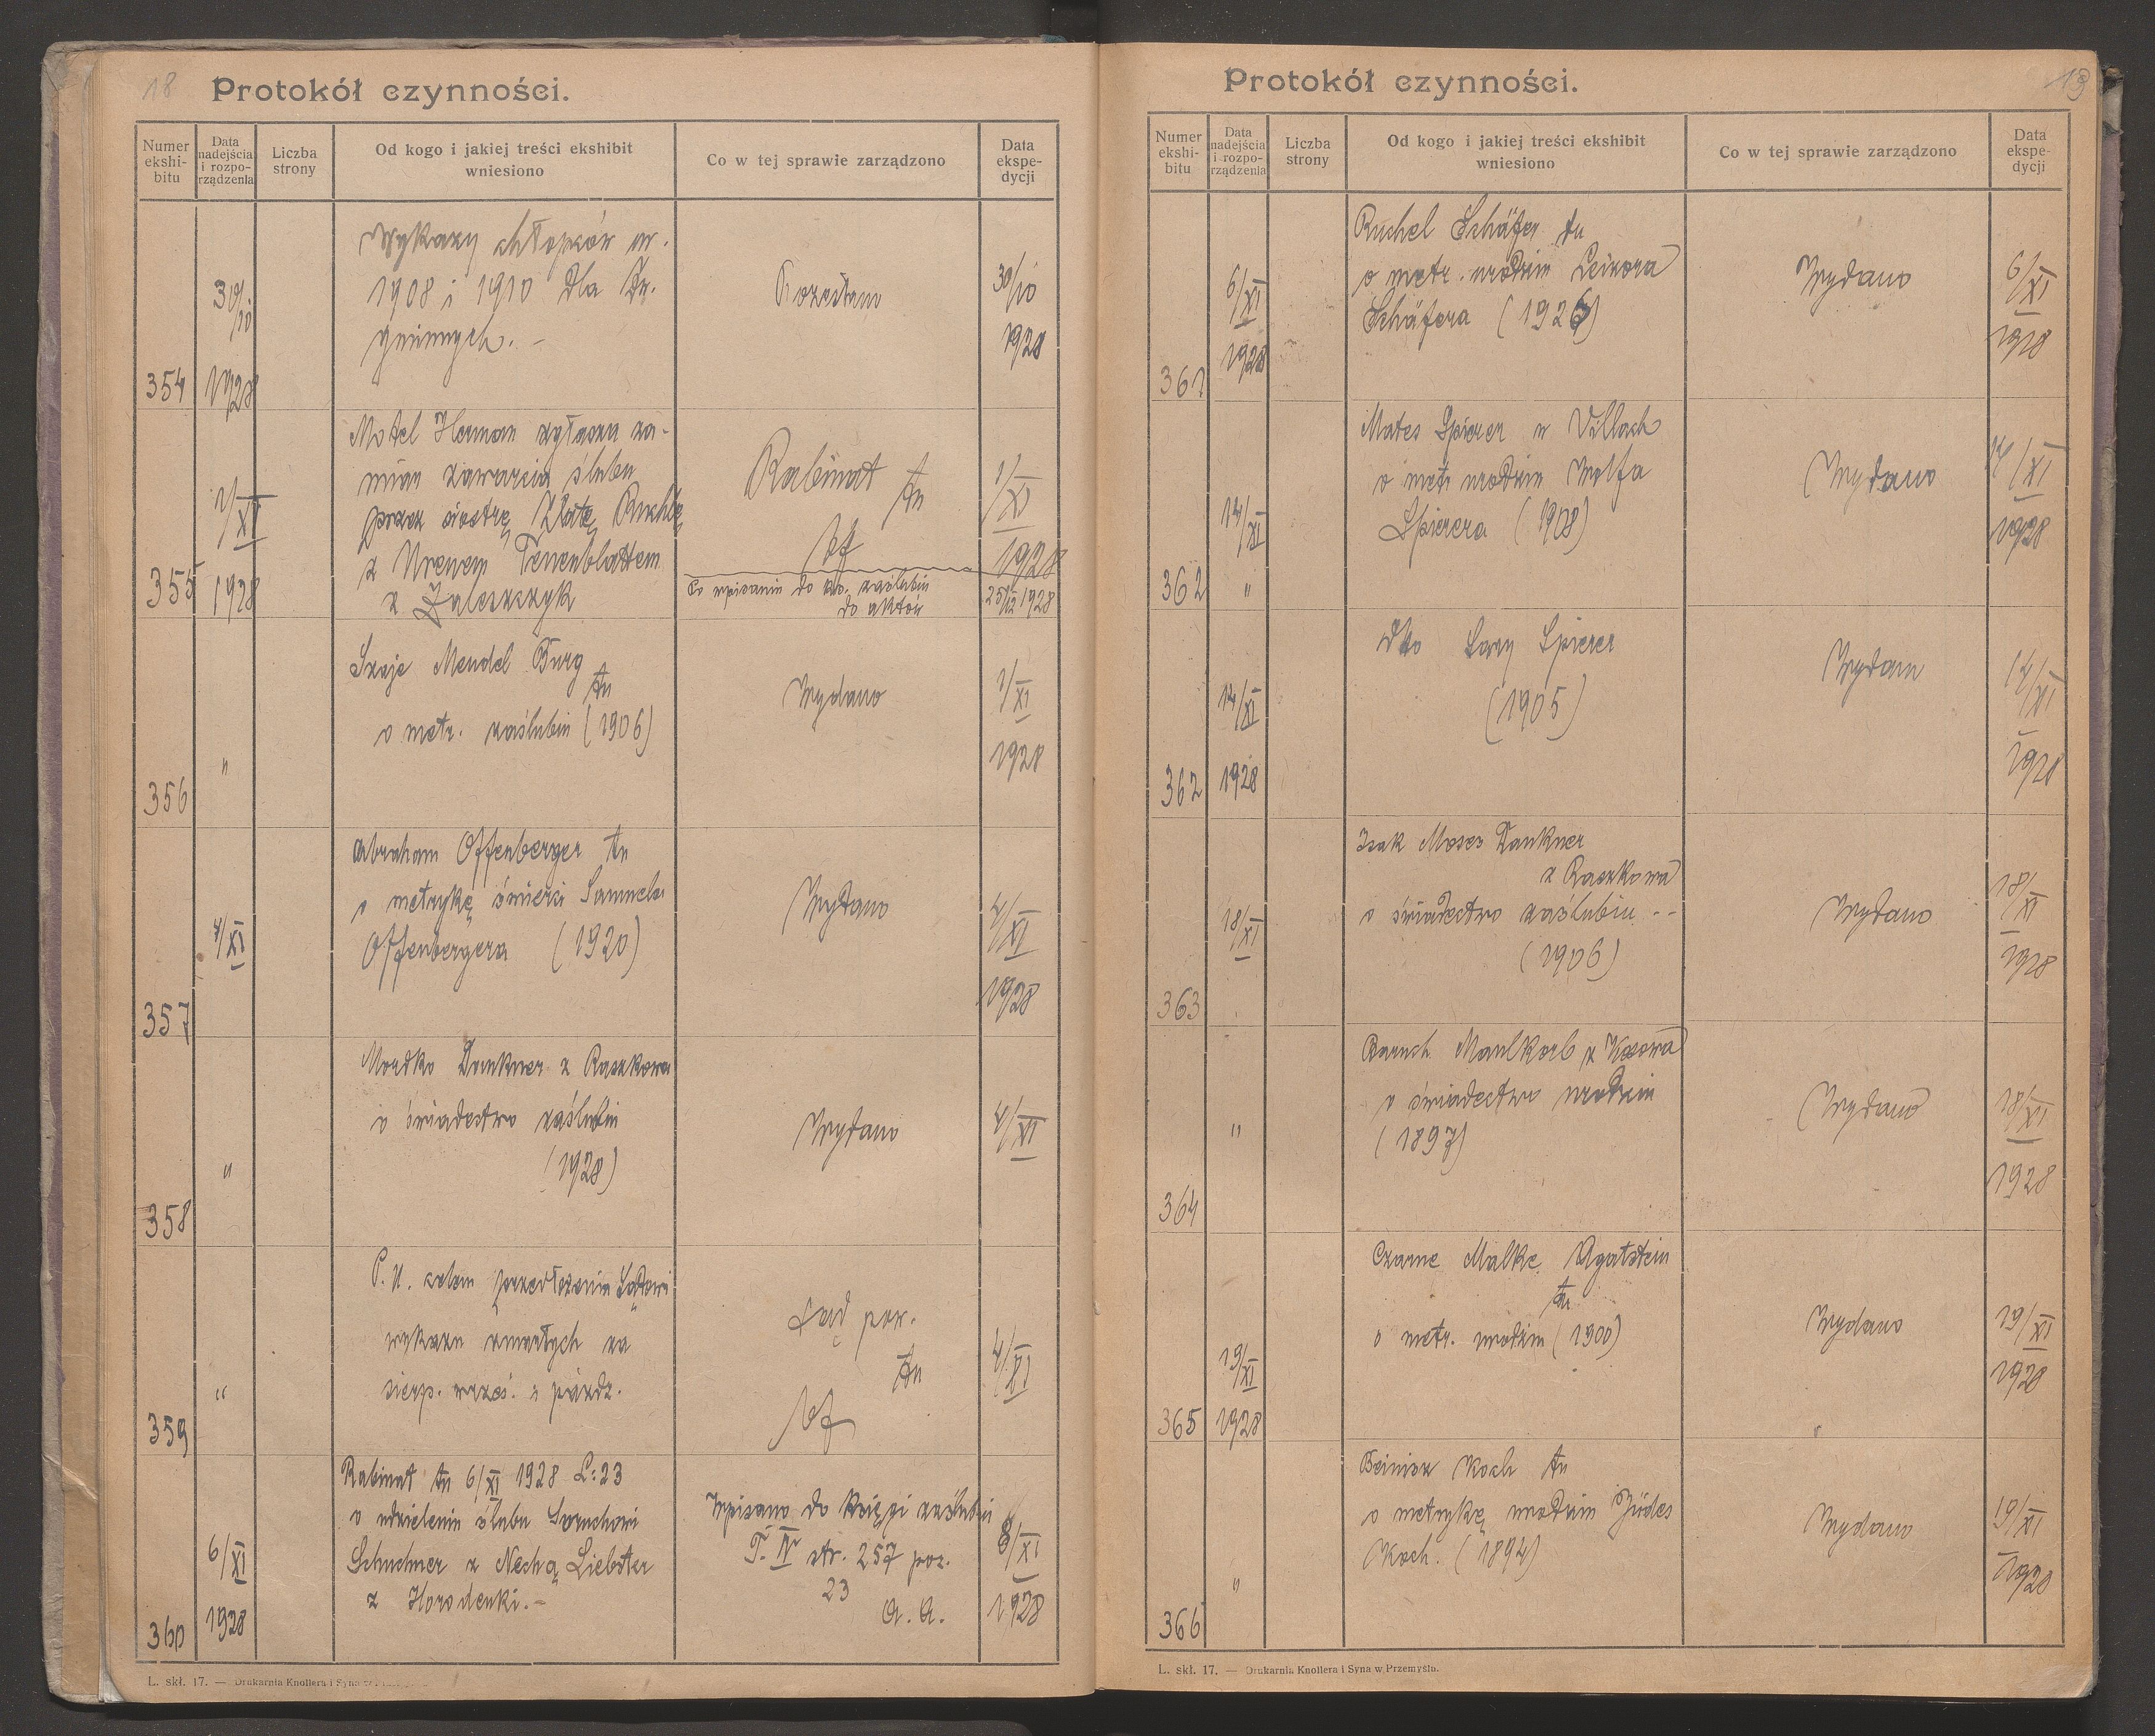 18
Protokół czynności.
Numer ekshi-bitu
Data nadejścia i rozpo-rządzenia
Liczba strony
Od kogo i jakiej treści ekshibit wniesiono
Co w tej sprawie zarządzono
Data ekspe-dycji
354
30/10 1928
Wykazy chłopców ur.
1908 i 1910 dla Zw.
gminnych. -
Rozesłano
30/10
1928
355
1/XI 1928
Motel Herman zgłasza za-
miar zawarcia ślubu
przez siostrę Złatę Ruchlę
z Tenenblattem
z Zaleszczyk
Rabinat tu
1/XI
1928
Po wpisaniu do ks. zaślubin
do aktów
25/12 1928
356
"
Szaje Mendel Burg
tu
o metr. zaślubin (1906)
Wydano
1/XI
1928
357
4/XI
Abraham Offenberger tu
o metrykę śmierci Samuela
Offenbergera (1920)
Wydano
4/XI
1928
358
"
Mordko Dankner z Raszkowa
o świadectwo zaślubin
(1928)
Wydano
4/XI
359
"
P. U. celem przedłożenia Sądowi
wykazu zmarłych za
sierp. wrześ. i paźdz.
Sąd pow.
tu
4/XI
360
6/XI 1928
Rabinat tu 6/XI 1928 L:23
o udzieleniu ślubu Boruchowi
Schuchner z Nechą Liebster
z Horodenki. -
Wpisano do księgi zaślubin
T. IV str. 257 poz.
23
a. a.
8/XI
1928
L. skł. 17. — Drukarnia Knollera i Syna
19
Protokół czynności.
Numer ekshi-bitu
Data nadejścia i rozpo-rządzenia
Liczba strony
Od kogo i jakiej treści ekshibit wniesiono
Co w tej sprawie zarządzono
Data ekspe-dycji
361
6/XI 1928
Ruchel Schäfer tu
o metr. urodzin Leizora
Schäfera (1926)
Wydano
6/XI
1928
362
14/XI
"
Mates Spierer w Villach
o metr urodzin Wolfa
Spierera (1908)
Wydano
14/XI
1928
362
14/XI
1928
dto Sary Spierer
(1905)
Wydano
14/XI
1928
363
18/XI
Isak Moses Dankner
z Raszkowa
o świadectwo zaślubin --
(1906)
Wydano
18/XI
1928
364
"
Baruch Maulkorb z Kosowa
o świadectwo urodzin
(1897)
Wydano
18/XI
1928
365
19/XI
1928
Czarne Malke Agatstein
tu
o metr. urodzin (1900)
Wydano
19/XI
1928
366
"
Beinisz Koch tu
o metrykę urodzin Jüdes
Koch. (1894)
Wydano
19/XI
1928
L. skł. 17. — Drukarnia Knollera i Syna w Przemyślu.